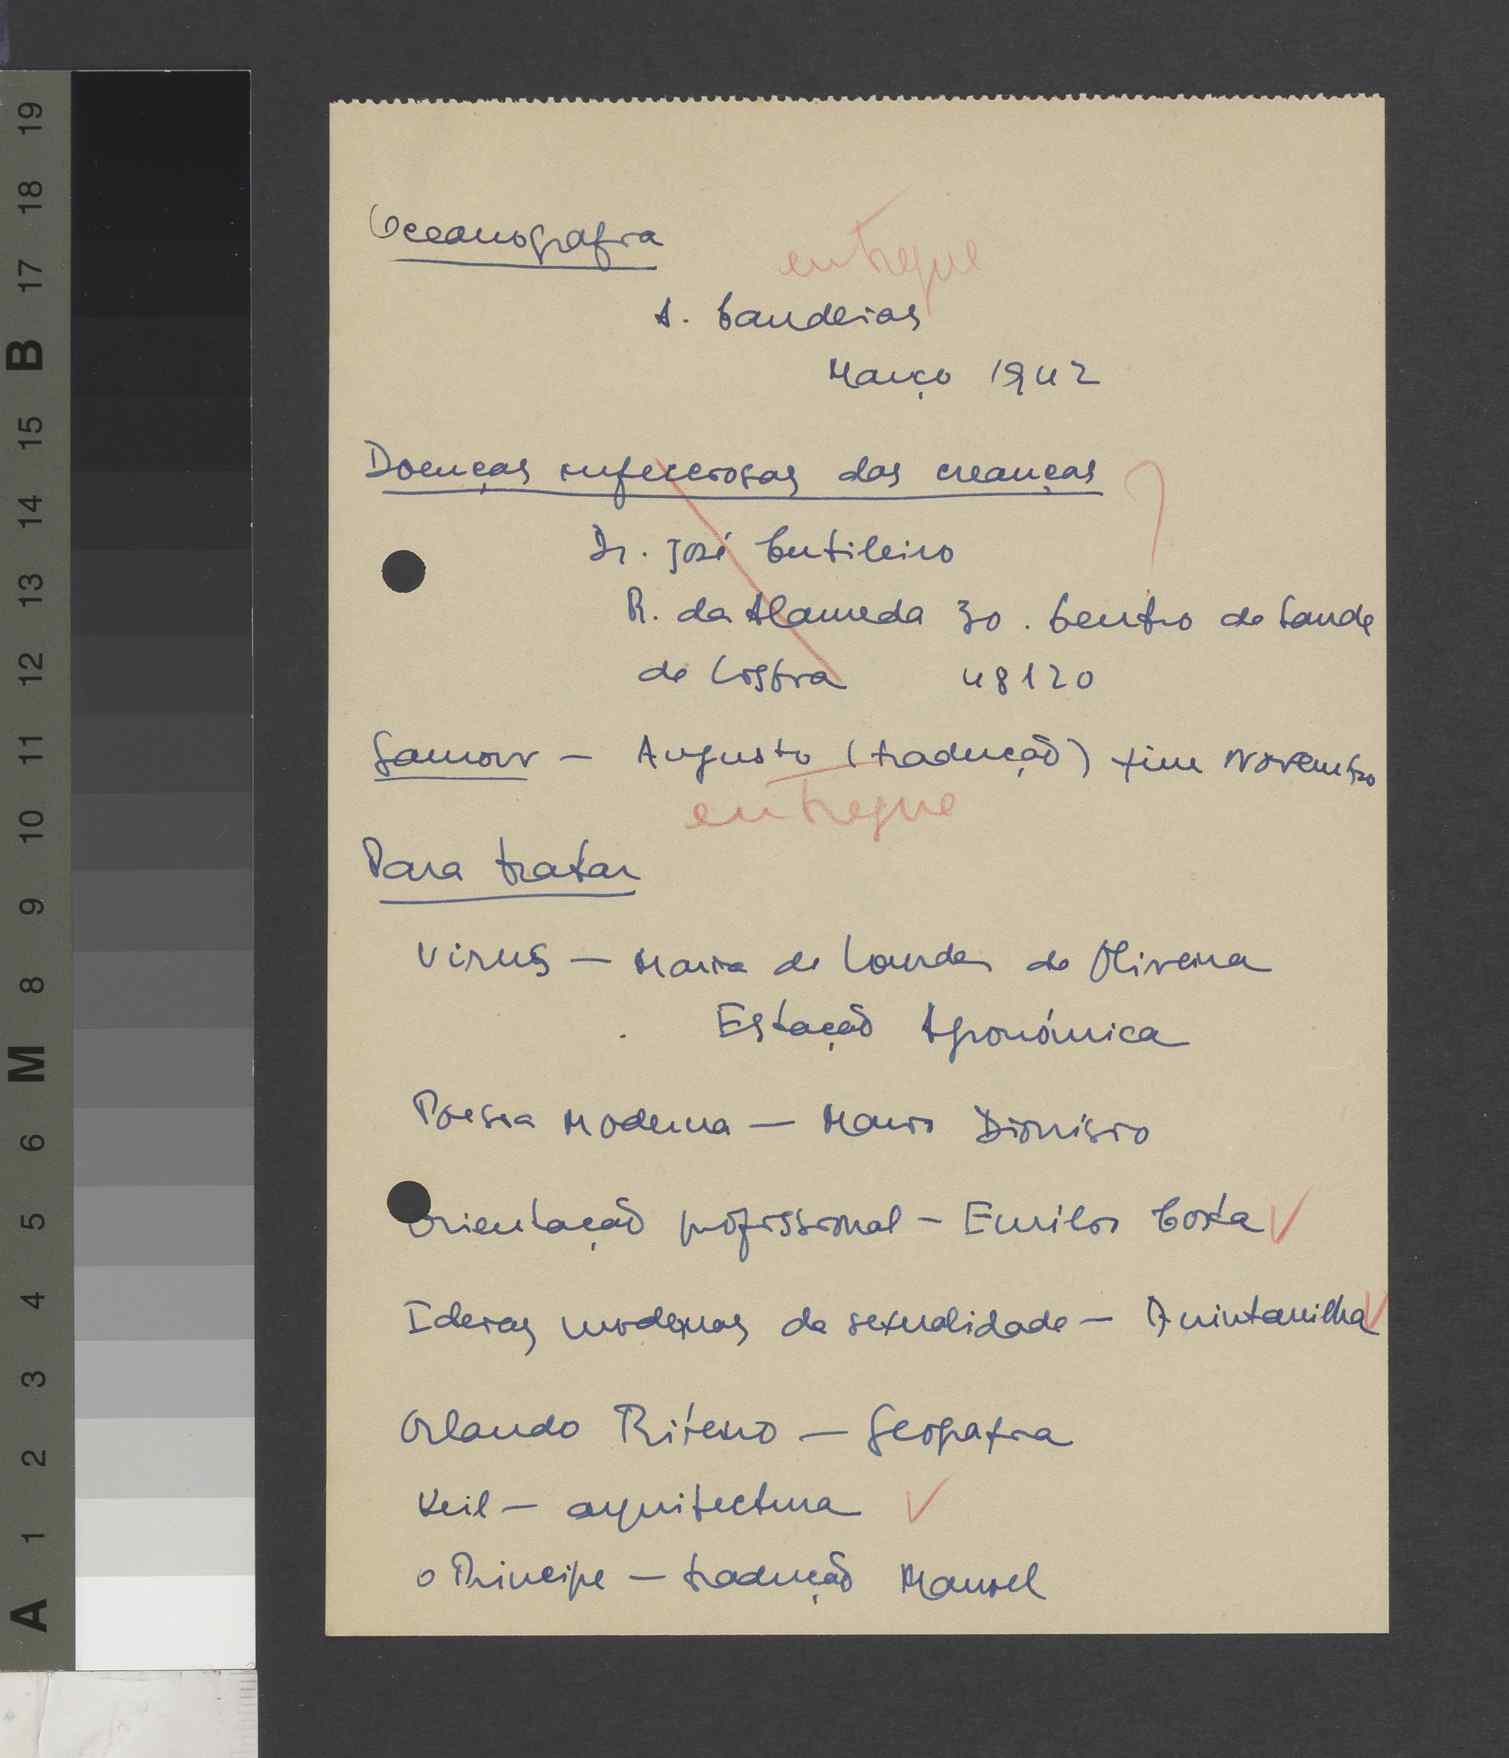 Oceanografia
entregue
A. Candeias
Março 1942
Doenças infecciosas das creanças ?
Dr. José Cutileiro
R. da Alameda 30. Centro de Saude
de Lisboa 48120
Gamow — Augusto (tradução) fim Novembro
entregue
Para tratar
Virus — Maria de Lourdes de Oliveira
Estação Agronómica
Poesia Moderna — Mario Dionisio
Orientação profissional — Emilio Costa ✓
Ideias modernas da sexualidade — Quintanilha ✓
Orlando Ribeiro — Geografia
Keil — arquitectura ✓
o Principe — tradução Manuel
19
18
17
B
15
14
13
12
11
10
9
8
M
6
5
4
3
2
1
A